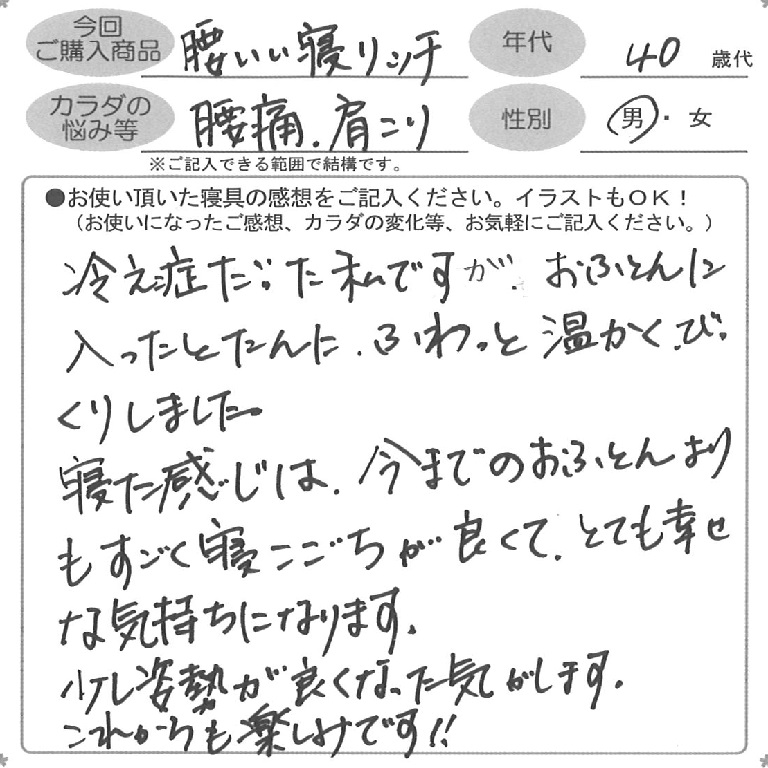 今回
ご購入商品
腰いい寝リッチ
年代
40 歳代
カラダの
悩み等
腰痛、肩こり
性別
男・女
※ご記入できる範囲で結構です。
●お使い頂いた寝具の感想をご記入ください。イラストもOK!
(お使いになったご感想、カラダの変化等、お気軽にご記入ください。)
冷え症だった私ですが、おふとんに
入ったとたんに、ふわっと温かく、びっ
くりしました。
寝た感じは、今までのおふとんより
もすごく寝ごごちが良くて、とても幸せ
な気持ちになります。
少し姿勢が良くなった気がします。
これからも楽しみです!!